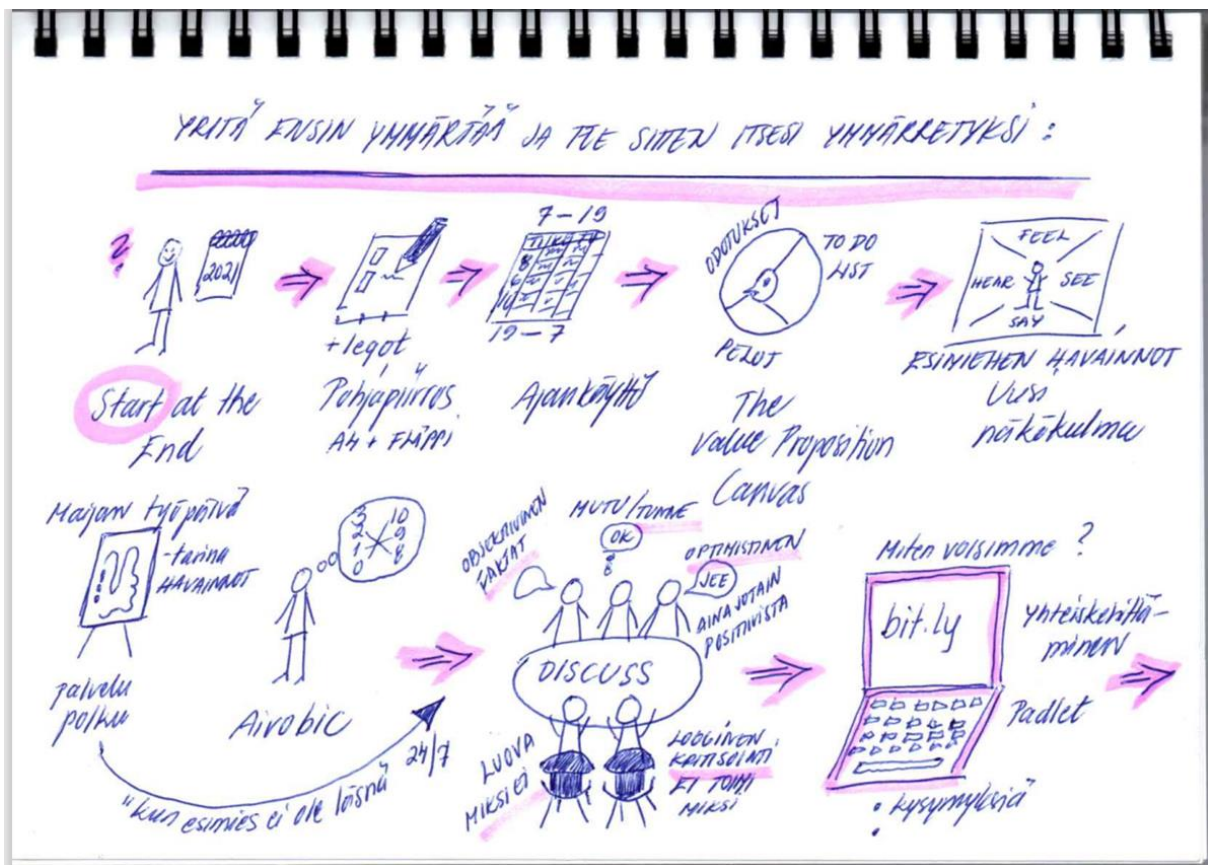 YRITÄ ENSIN YMMÄRTÄÄ JA TEE SITTEN ITSESI YMMÄRRETYKSI :
?
2021
Start at the
End
+ legot
Pohjapiirros
A4 + FLÄPPI
7–19
TI KE TO
8
19–7
Ajankäyttö
ODOTUKSET
TO DO
LIST
PELOT
The
Value Proposition
Canvas
FEEL
HEAR
SEE
SAY
ESIMIEHEN HAVAINNOT
Uusi
näkökulma
Maijan työpäivä
- tarina
HAVAINNOT
palvelu
polku
3 10
2 9
1 8
0
Airobic
"kun esimies ei ole läsnä"
24/7
OBJEKTIIVINEN
FAKTAT
MUTU/TUNNE
OK
OPTIMISTINEN
JEE
AINA JOTAIN
POSITIIVISTA
DISCUSS
LUOVA
MIKSI EI
LOOGINEN
KRITISOINTI
EI TOIMI
MIKSI
Miten voisimme ?
bit.ly
Yhteiskehittä-
minen
Padlet
• kysymyksiä
•